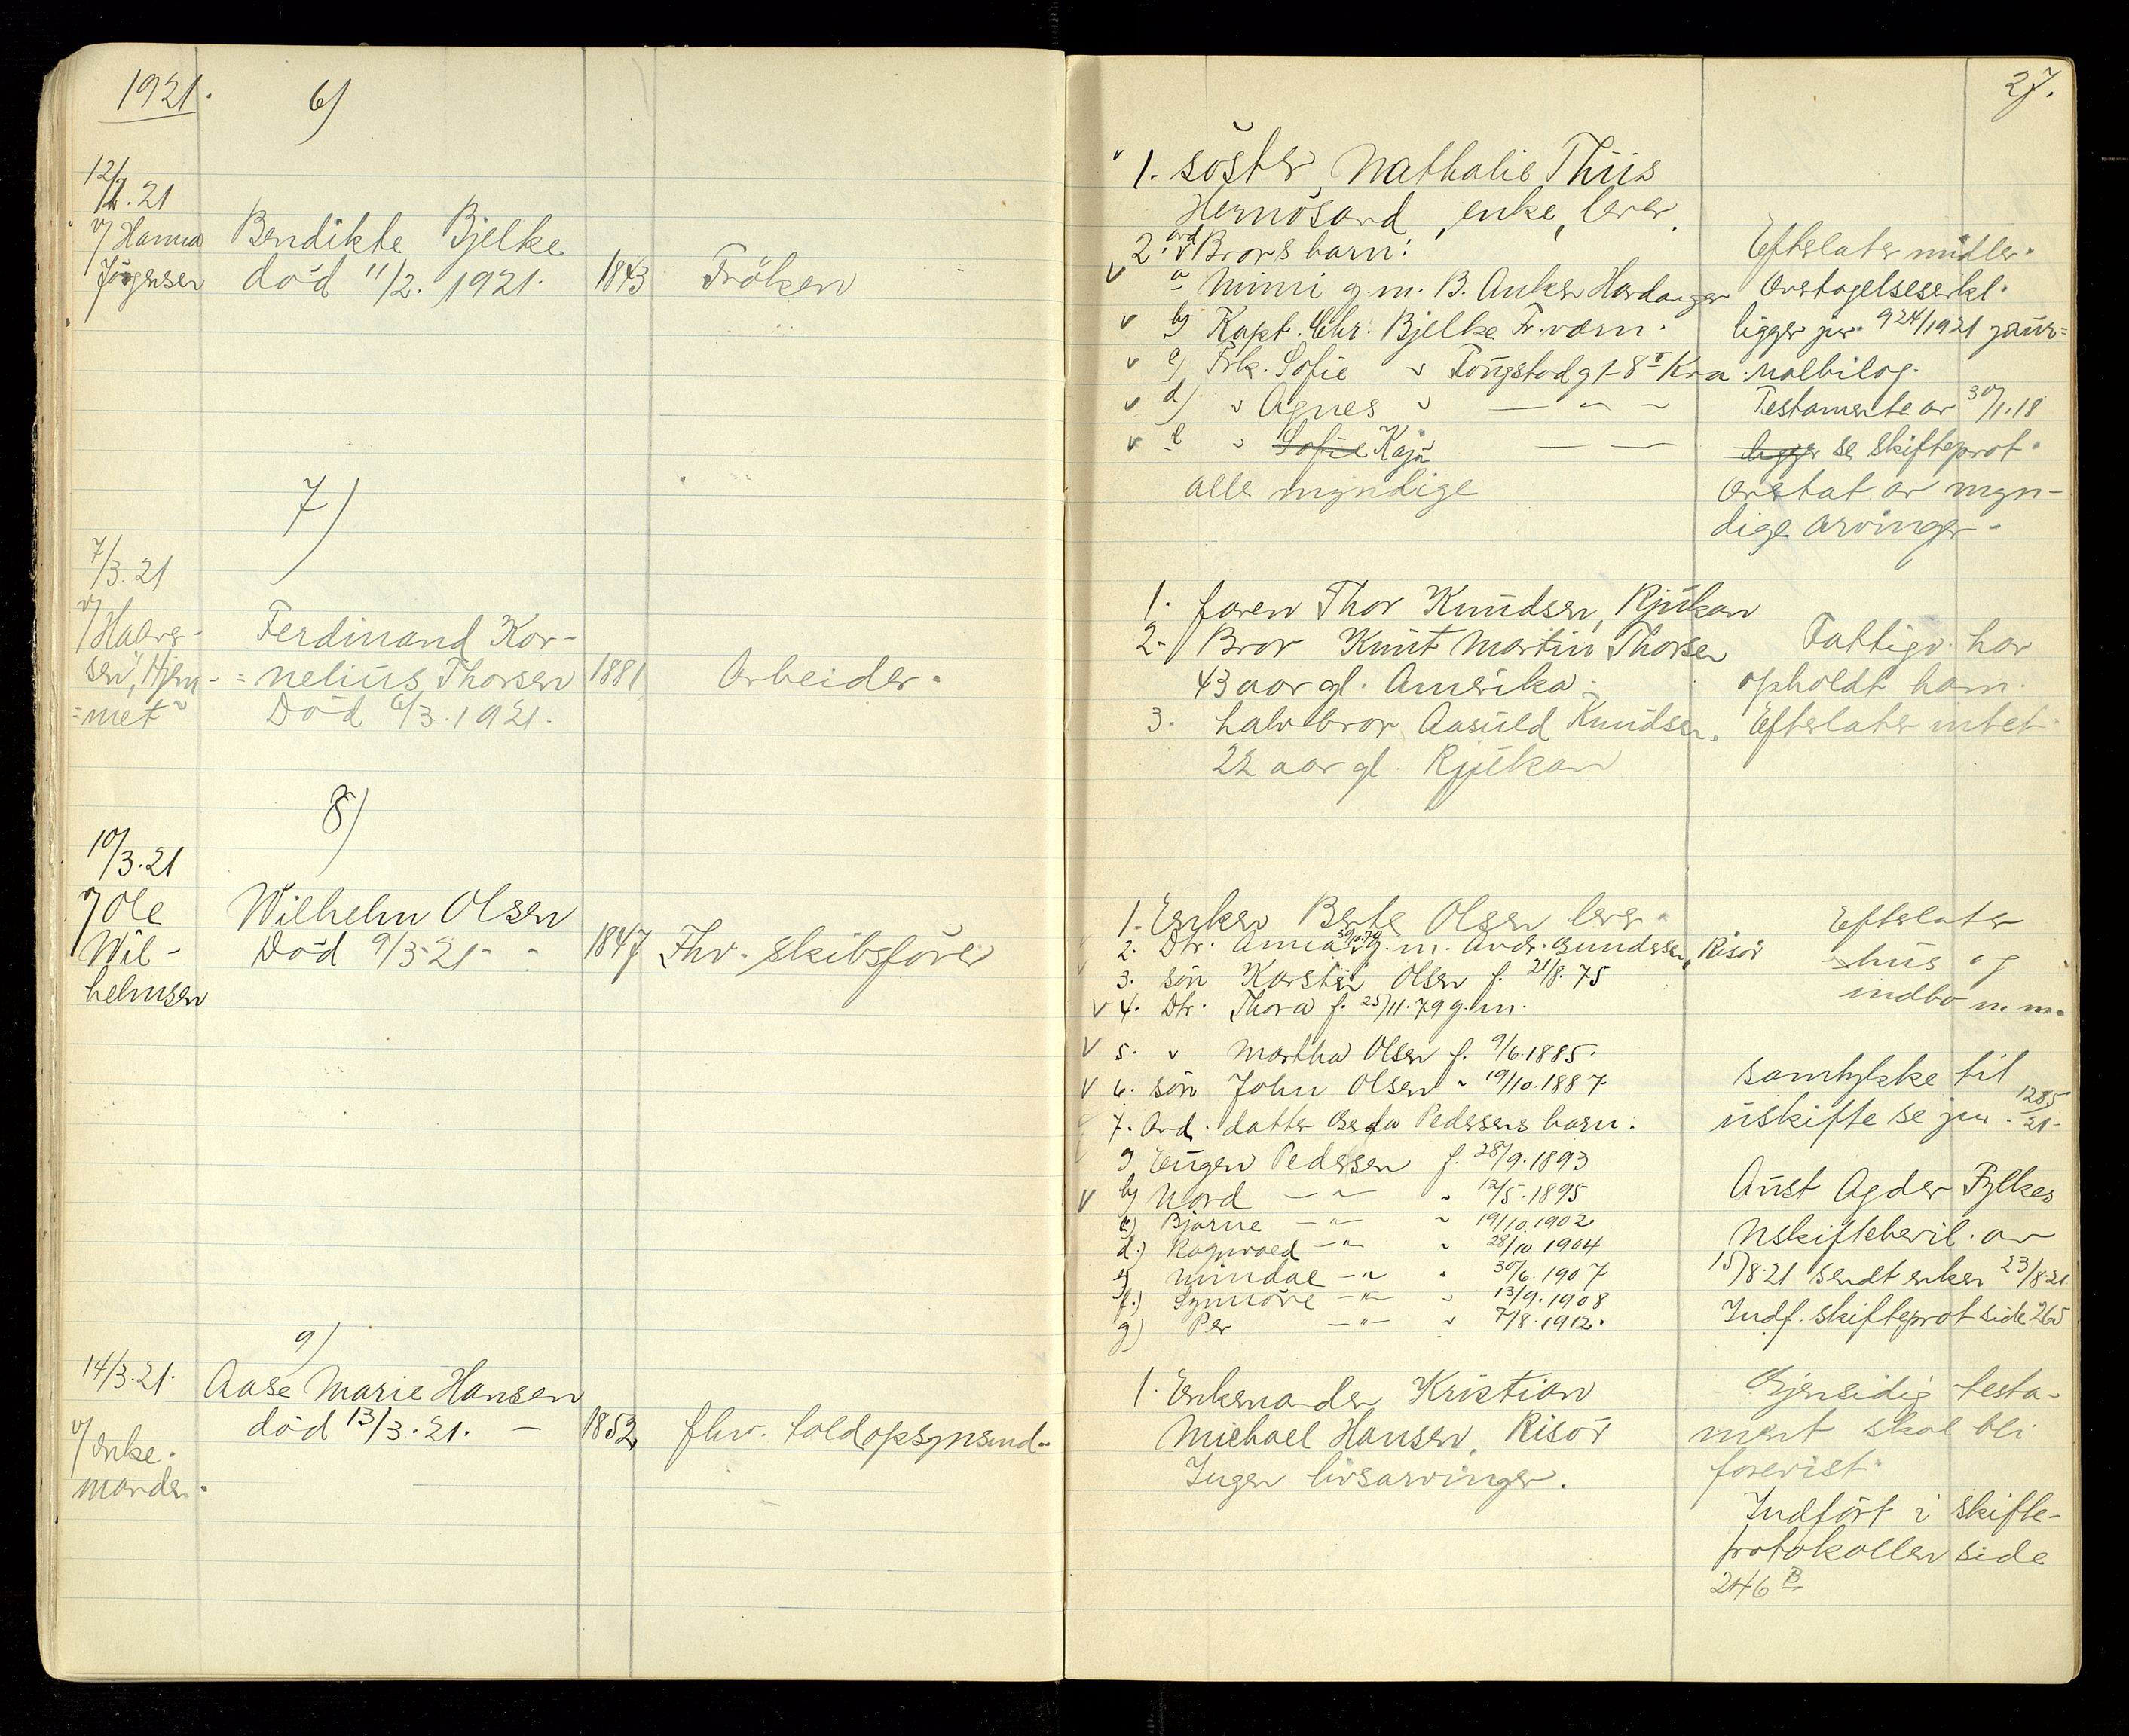 1921.
6)
12/2.21
v/ Hanna
Jörgensen
Bendikte Bjelke
död 11/2. 1921.
1843
Fröken
7)
7/3.21
v/ Halvor-
sen, "Hjem-
met"
Ferdinand Kor-
nelius Thorsen
Död 6/3.1921.
1881
Arbeider.
8)
10/3.21
v/ Ole
Wil-
helmsen
Wilhelm Olsen
Död 9/3.21.
1847
Fhv. skibsförer
9)
14/3.21.
v/ enke-
manden.
Aase Marie Hansen
död 13/3.21. —
1852
fhv. toldopsynsmd.
27.
1. söster, Nathalie Thiis
Hernösand, enke, lever.
2. avd. Brors barn:
a Mimi g.m. B. Anker Hardanger
b) Kapt. Chr. Bjelke Fr.værn.
c) Frk. Sofie " Tongstadgt 8 I Kra.
d) " Agnes " — " —
e " Sofie Kaja — —
alle myndige
Efterlater midler.
Overtagelseserkl.
ligger jnr. 924/1921 jour-
nalbilag.
Testamente av 30/1.18
ligger se skifteprot.
Overtat av myn-
dige arvinger.
1. faren Thor Knudsen, Rjukan
2. Bror Knut Martin Thorsen
43 aar gl. Amerika.
3. halvbror Aasuld Knudsen,
22 aar gl. Rjukan
Fattigv. har
opholdt ham.
Efterlater intet.
1. Enken Berte Olsen lever.
2. Dtr. Anna g.m. Andr. Gundersen, Risör
3. sön Karsten Olsen f. 21/8.75
4. Dtr. Thora f. 25/11.79 g.m.
5. " Martha Olsen f. 9/6.1885.
6. sön John Olsen " 19/10.1887
7. Avd. datter Berta Pedersens barn:
a) Eugen Pedersen f. 28/9.1893
b) Nord — " — " 12/5.1895
c) Bjarne — " — " 19/10.1902
d.) Ragnvald — " — " 28/10 1904
e) Mindal — " — " 30/6.1907
f.) Synnöve — " — " 13/9.1908
g) Per — " — " 7/8.1912.
Efterlater
hus og
indbo m.m.
samtykke til
uskifte se jnr. 1285/21.
Aust Agder Fylkes
Uskiftebevil. av
15/8.21 sendt enken 23/8.21
Indf. skifteprot side 265
1. Enkemanden Kristian
Michael Hansen, Risör
Ingen livsarvinger.
Gjensidig testa-
ment skal bli
forevist.
Indfört i skifte-
protokollen side
246 B